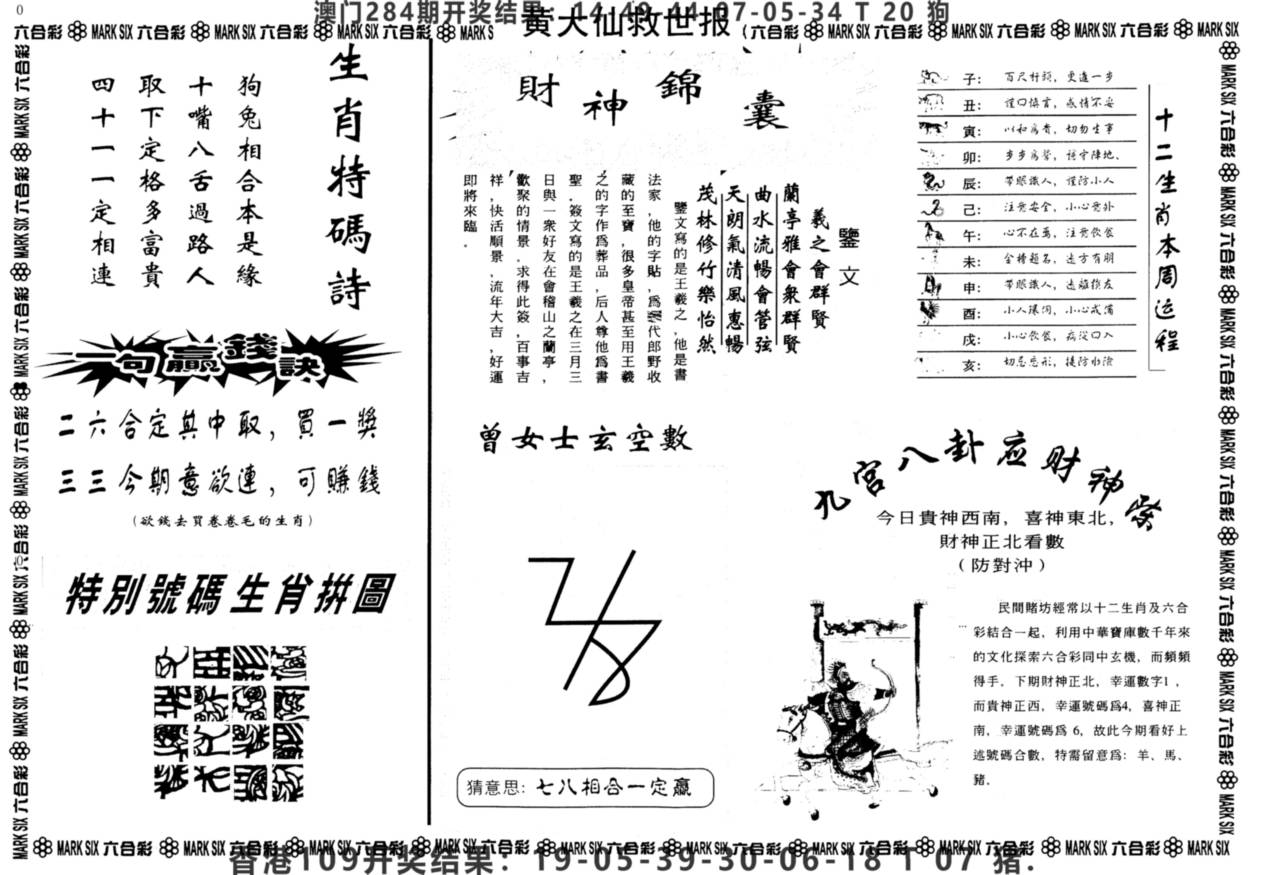 0
澳门284期开奖结果：14-49-44-07-05-34 T 20 狗
黄大仙救世报
六合彩 MARK SIX 六合彩 MARK SIX 六合彩 MARK SIX 六合彩 MARK S
六合彩 MARK SIX 六合彩 MARK SIX 六合彩 MARK SIX 六合彩 MARK SIX
生肖特碼詩
狗兔相合本是緣
十嘴八舌過路人
取下定格多富貴
四十一一定相連
一句贏錢訣
二六合定其中取，買一獎
三三今期意欲連，可賺錢
（欲錢去買卷卷毛的生肖）
特別號碼生肖拼圖
財神錦囊
鑒文
羲之會群賢
蘭亭雅會衆群賢
曲水流暢會管弦
天朗氣清風惠暢
茂林修竹樂怡然
鑒文寫的是王羲之，他是書
法家，他的字貼，爲歷代郎野收
藏的至寶，很多皇帝甚至用王羲
之的字作爲葬品，后人尊他爲書
聖，簽文寫的是王羲之在三月三
日與一衆好友在會稽山之蘭亭，
歡聚的情景，求得此簽，百事吉
祥，快活順景，流年大吉，好運
即將來臨．
曾女士玄空數
猜意思：七八相合一定贏
十二生肖本周运程
子：百尺杆頭，更進一步
丑：謹口慎言，感情不妥
寅：以和爲貴，切勿生事
卯：步步爲營，穩守陣地、
辰：帶眼識人，謹防小人
己：注意安全，小心意外
午：心不在焉，注意飲食
未：金榜題名，遠方有朋
申：帶眼識人，遠離損友
酉：小人環伺，小心戒備
戌：小心飲食，病從口入
亥：切忌忘形，提防水險
九宮八卦应财神柴
今日貴神西南，喜神東北，
財神正北看數
（防對沖）
民間賭坊經常以十二生肖及六合
彩結合一起，利用中華寶庫數千年來
的文化探索六合彩同中玄機，而頻頻
得手，下期財神正北，幸運數字1，
而貴神正西，幸運號碼爲4，喜神正
南，幸運號碼爲 6，故此今期看好上
述號碼合數，特需留意爲：羊、馬、
豬．
MARK SIX 六合彩 MARK SIX 六合彩 MARK SIX 六合彩 MARK SIX 六合彩 MARK SIX 六合彩 MARK SIX 六合彩 MARK SIX 六合彩 MARK SIX 六合彩 MARK SIX 六合彩 MARK SIX
香港109开奖结果：19-05-39-30-06-18 T 07 猪.